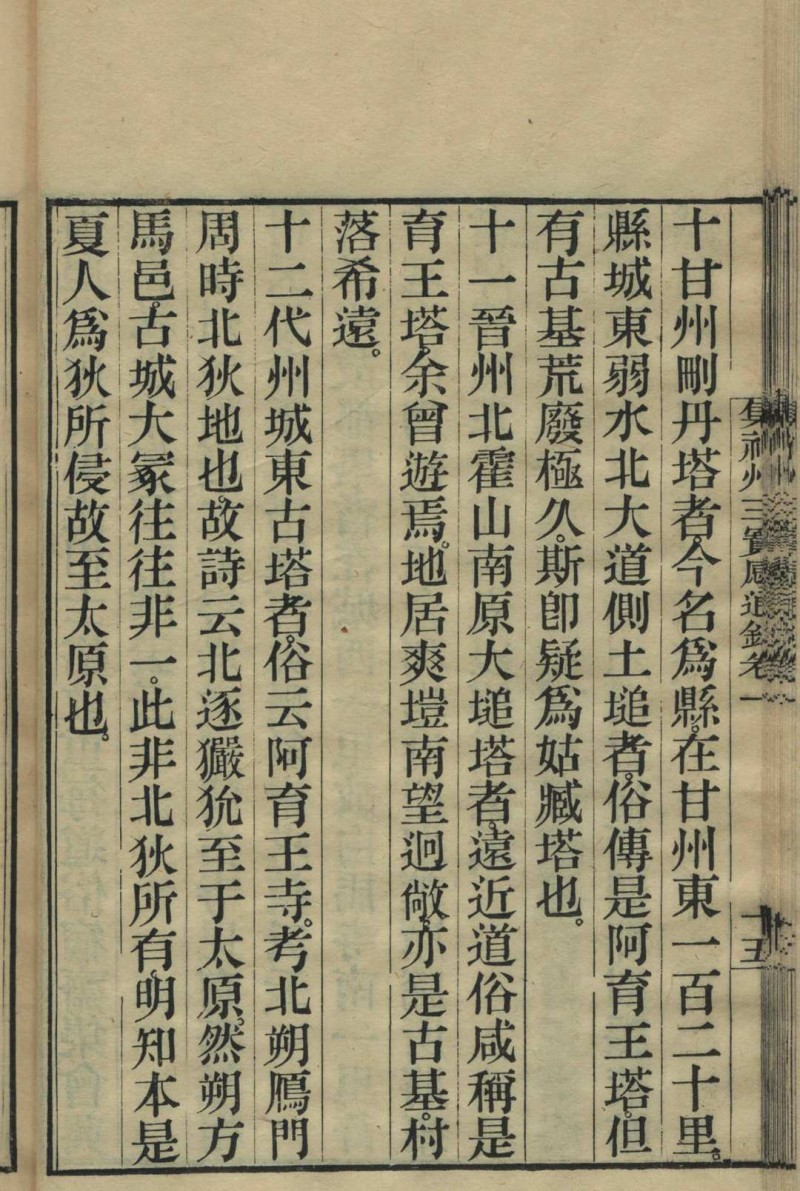 集神州三寶感通錄卷一
十五
十甘州刪丹塔者。今名為縣。在甘州東一百二十里。
縣城東弱水北大道側土塠者。俗傳是阿育王塔。但
有古基荒廢極久。斯卽疑為姑臧塔也。
十一晉州北霍山南原大塠塔者。遠近道俗咸稱是
育王塔。余曾遊焉。地居爽塏南望迥敞。亦是古基。村
落希遠。
十二代州城東古塔者。俗云阿育王寺。考北朔鴈門
周時北狄地也。故詩云北逐玁狁至于太原。然朔方
馬邑。古城大冢往往非一。此非北狄所有。明知本是
夏人為狄所侵故至太原也。